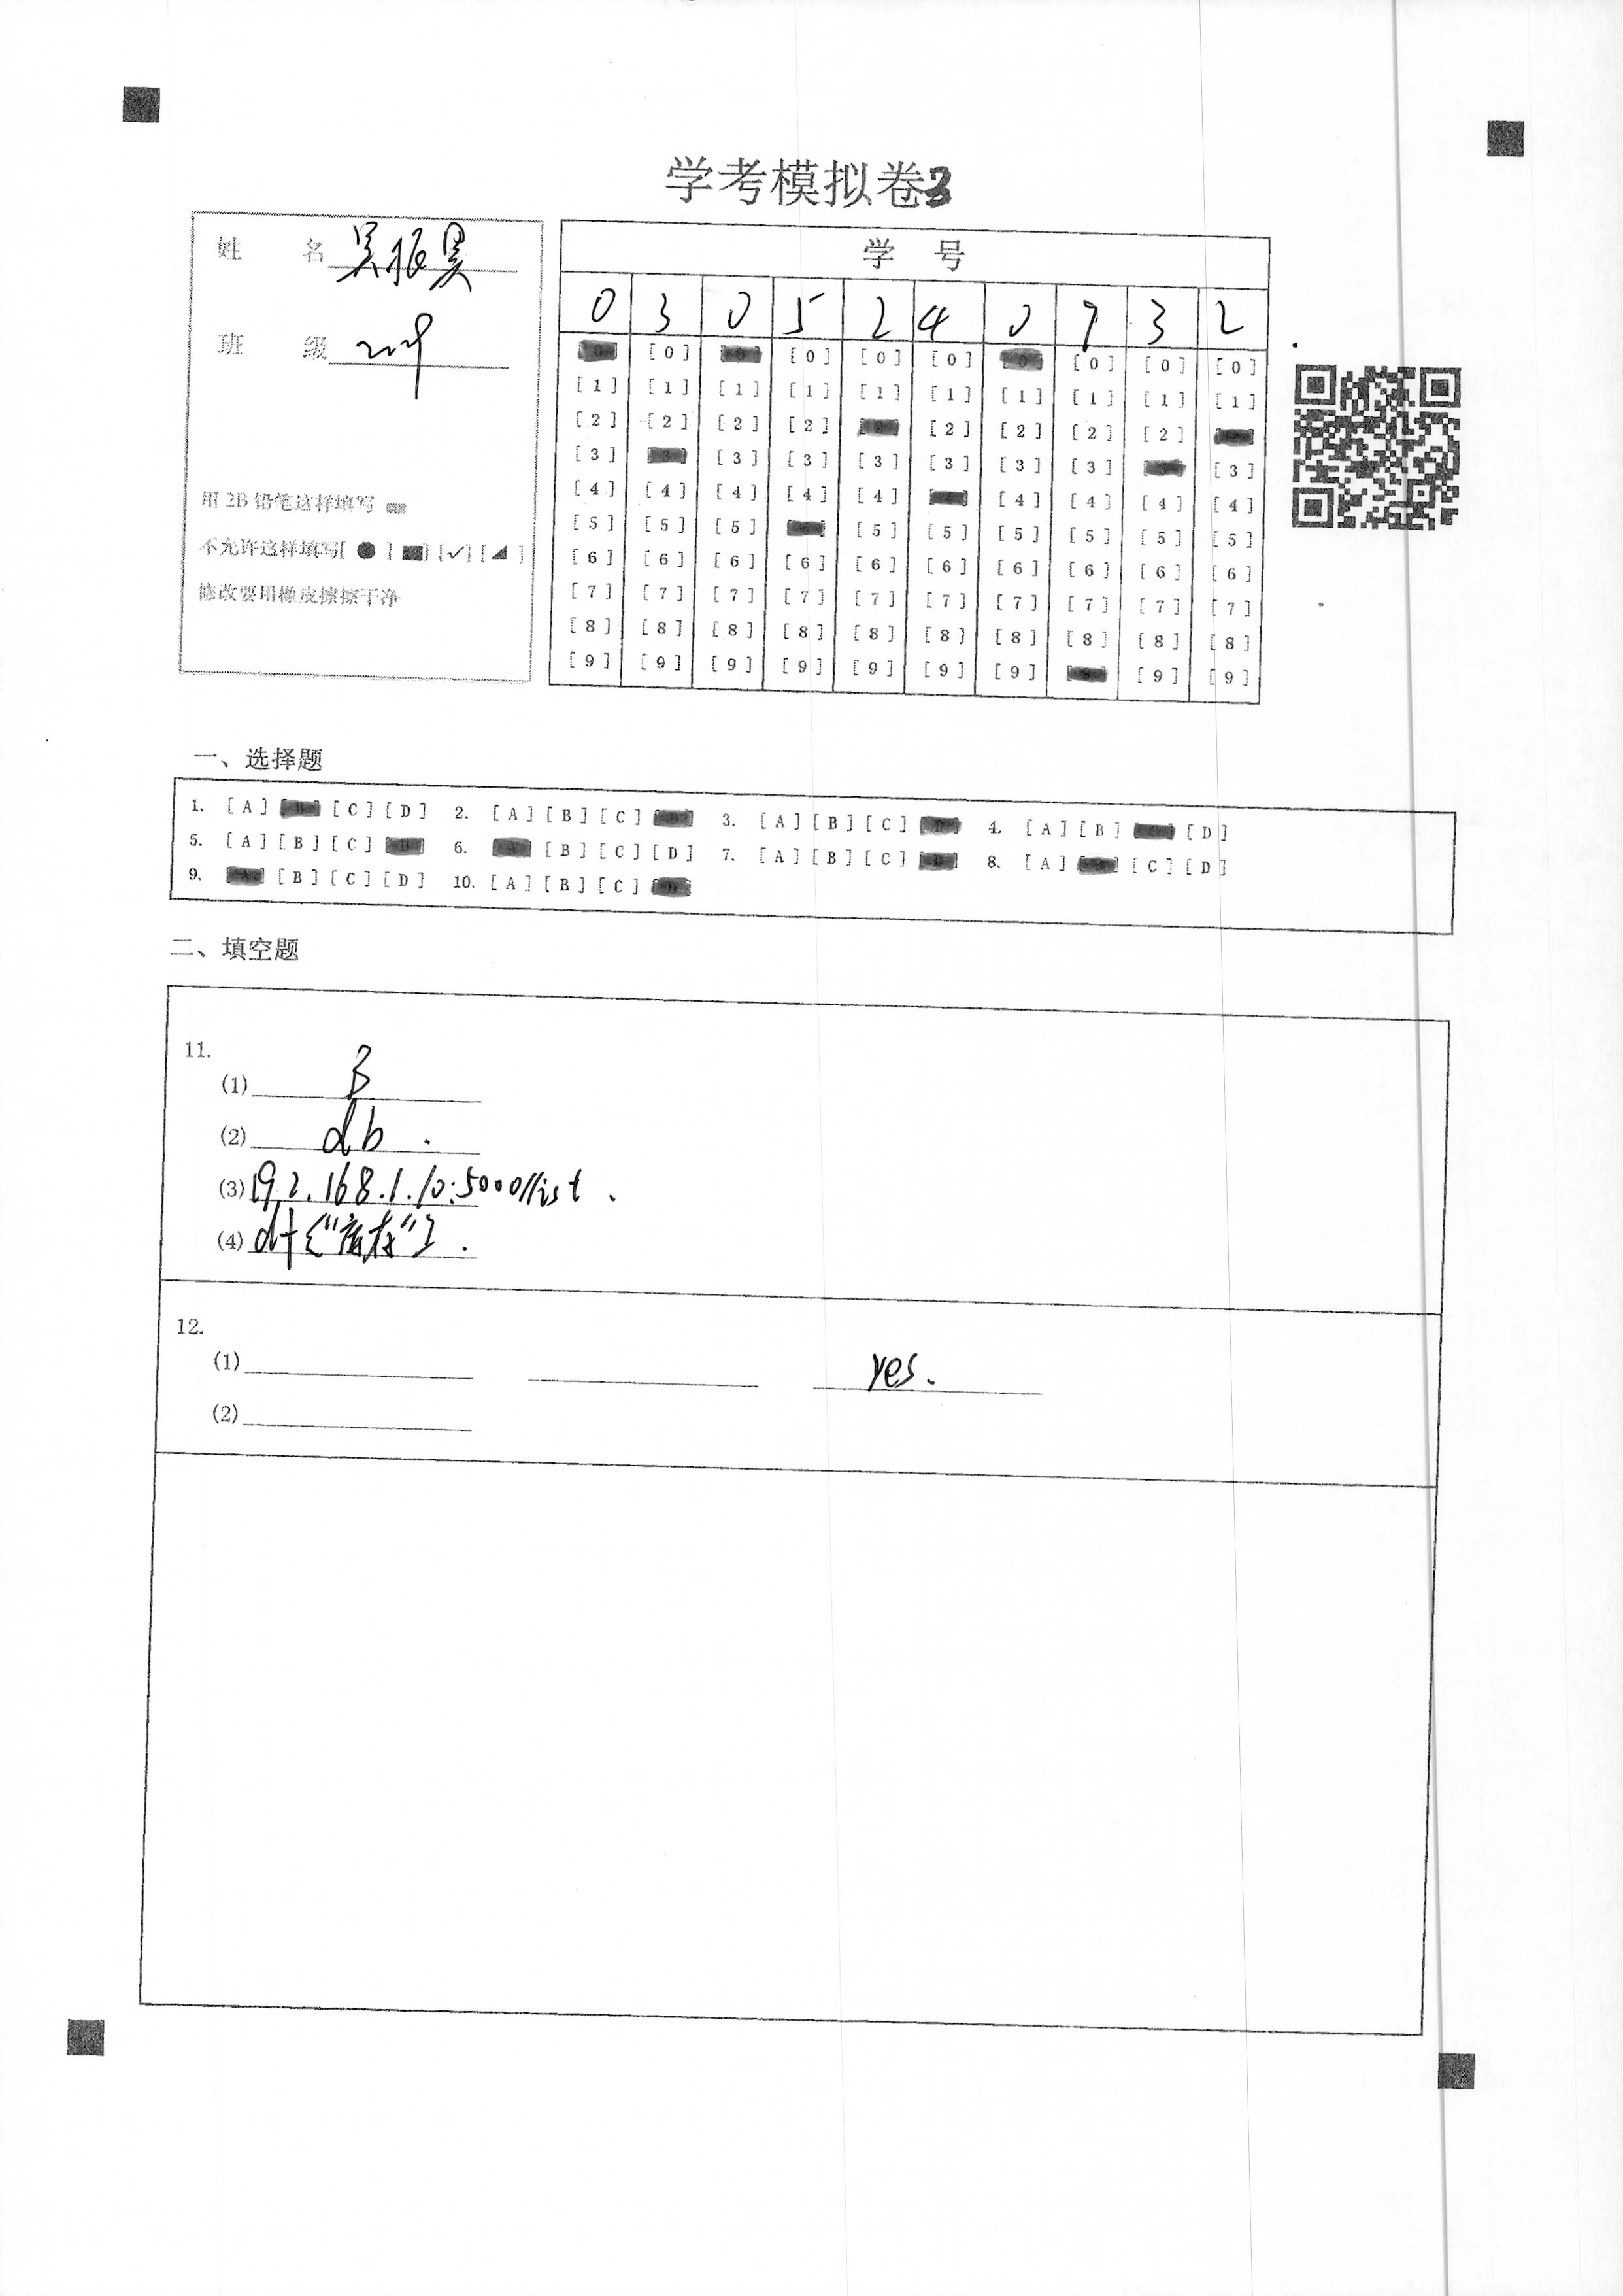 学考模拟卷3
姓 名 吴振昊
班 级
用 2B 铅笔这样填写
不允许这样填写[ ● ] [■] [✓] [◢ ]
修改要用橡皮擦擦干净
学 号
0 3 0 5 2 4 0 9 3 2
[0] [0] [0] [0] [0] [0] [0] [0] [0] [0]
[1] [1] [1] [1] [1] [1] [1] [1] [1] [1]
[2] [2] [2] [2] [2] [2] [2] [2] [2] [2]
[3] [3] [3] [3] [3] [3] [3] [3] [3] [3]
[4] [4] [4] [4] [4] [4] [4] [4] [4] [4]
[5] [5] [5] [5] [5] [5] [5] [5] [5] [5]
[6] [6] [6] [6] [6] [6] [6] [6] [6] [6]
[7] [7] [7] [7] [7] [7] [7] [7] [7] [7]
[8] [8] [8] [8] [8] [8] [8] [8] [8] [8]
[9] [9] [9] [9] [9] [9] [9] [9] [9] [9]
一、选择题
1. [A] [B] [C] [D] 2. [A] [B] [C] [D] 3. [A] [B] [C] [D] 4. [A] [B] [C] [D]
5. [A] [B] [C] [D] 6. [A] [B] [C] [D] 7. [A] [B] [C] [D] 8. [A] [B] [C] [D]
9. [A] [B] [C] [D] 10. [A] [B] [C] [D]
二、填空题
11.
(1) B
(2) db .
(3) 192.168.1.10:5000/list .
(4) df["库存"] .
12.
(1) yes.
(2)